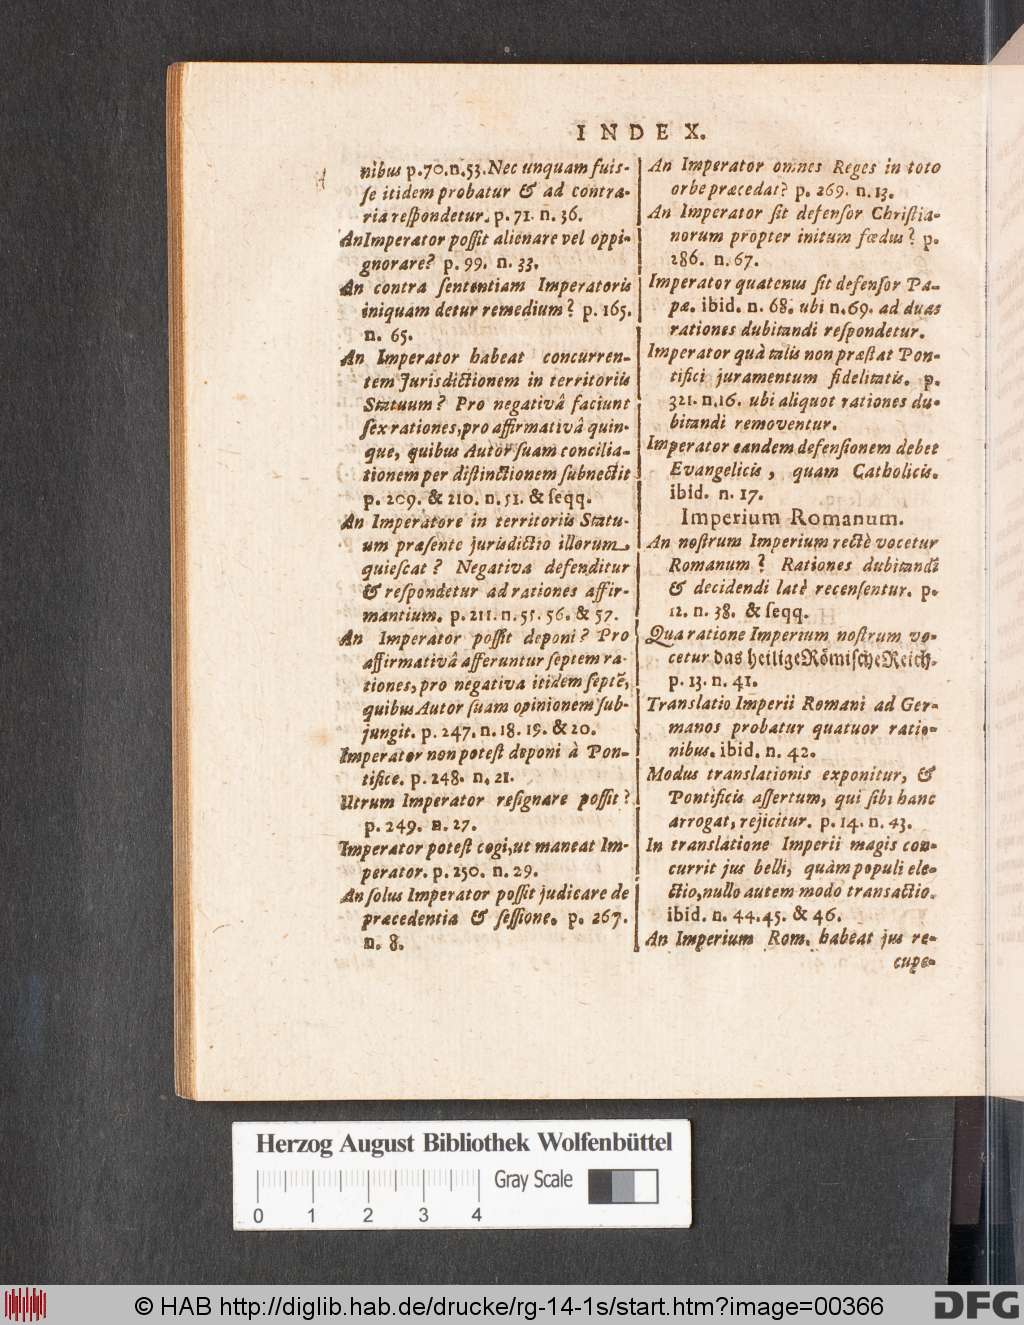 INDEX.
nibus p.70.n.53. Nec unquam fuis-
ſe itidem probatur & ad contra-
ria reſpondetur. p. 71. n. 36.
An Imperator poſſit alienare vel oppi-
gnorare? p. 99. n. 33.
An contra ſententiam Imperatoris
iniquam detur remedium? p. 165.
n. 65.
An Imperator habeat concurren-
tem Jurisdictionem in territoriis
Statuum? Pro negativâ faciunt
ſex rationes, pro affirmativâ quin-
que, quibus Autor ſuam concilia-
tionem per diſtinctionem ſubnectit
p. 209. & 210. n. 51. & ſeqq.
An Imperatore in territoriis Statu-
um præſente jurisdictio illorum
quieſcat? Negativa defenditur
& reſpondetur ad rationes affir-
mantium. p. 211. n. 55. 56. & 57.
An Imperator poſſit deponi? Pro
affirmativâ afferuntur ſeptem ra-
tiones, pro negativa itidem ſeptẽ,
quibus Autor ſuam opinionem ſub-
jungit. p. 247. n. 18. 19. & 20.
Imperator non poteſt deponi à Pon-
tifice. p. 248. n. 21.
Utrum Imperator reſignare poſſit?
p. 249. n. 27.
Imperator poteſt cogi, ut maneat Im-
perator. p. 250. n. 29.
An ſolus Imperator poſſit judicare de
præcedentia & ſeſſione. p. 267.
n. 8.
An Imperator omnes Reges in toto
orbe præcedat? p. 269. n. 13.
An Imperator ſit defenſor Chriſtia-
norum propter initum fœdus? p.
286. n. 67.
Imperator quatenus ſit defenſor Pa-
pæ. ibid. n. 68. ubi n. 69. ad duas
rationes dubitandi reſpondetur.
Imperator quà talis non præſtat Pon-
tifici juramentum fidelitatis. p.
321. n. 16. ubi aliquot rationes du-
bitandi removentur.
Imperator eandem defenſionem debet
Evangelicis, quam Catholicis.
ibid. n. 17.
Imperium Romanum.
An noſtrum Imperium rectè vocetur
Romanum? Rationes dubitandi
& decidendi latè recenſentur. p.
12. n. 38. & ſeqq.
Qua ratione Imperium noſtrum vo-
cetur das heilige Römiſche Reich.
p. 13. n. 41.
Translatio Imperii Romani ad Ger-
manos probatur quatuor ratio-
nibus. ibid. n. 42.
Modus translationis exponitur, &
Pontificis aſſertum, qui ſibi hanc
arrogat, rejicitur. p. 14. n. 43.
In translatione Imperii magis con-
currit jus belli, quàm populi ele-
ctio, nullo autem modo transactio.
ibid. n. 44. 45. & 46.
An Imperium Rom. habeat jus re-
cupe-
Herzog August Bibliothek Wolfenbüttel
Gray Scale
0 1 2 3 4
© HAB http://diglib.hab.de/drucke/rg-14-1s/start.htm?image=00366
DFG